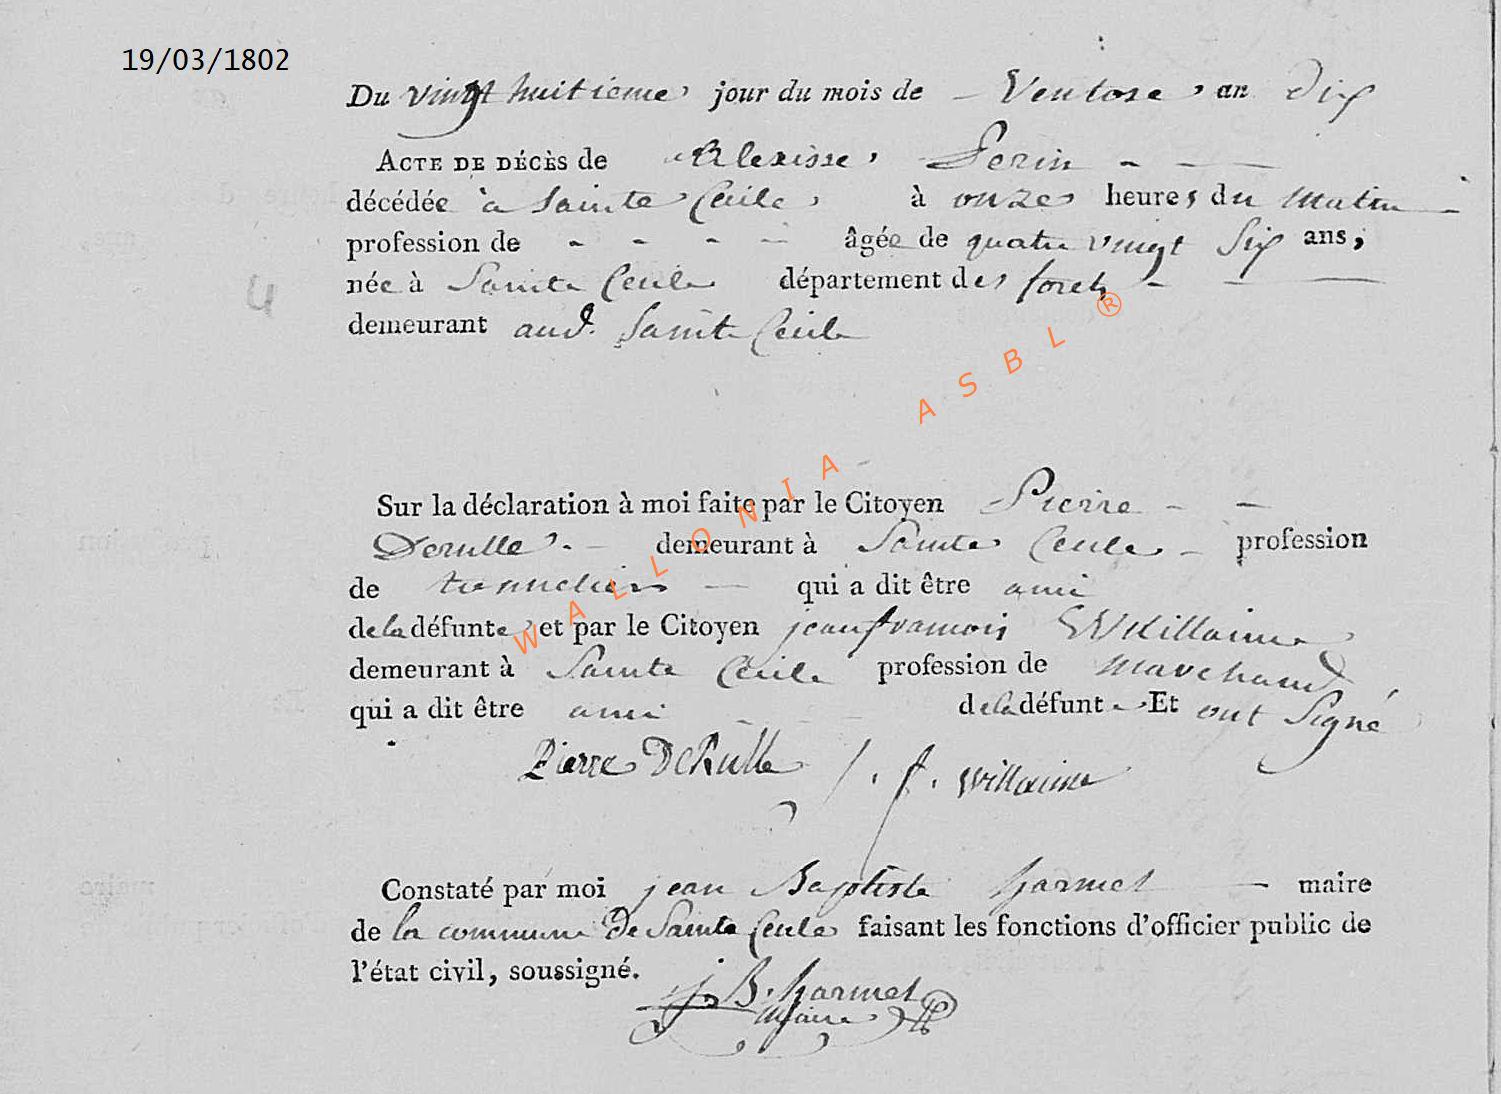 19/03/1802
Du vingt huitieme jour du mois de Ventose an Dix
ACTE DE DÉCÈS de Alexisse Perin
décédée à Sainte Cecile, à onze heures du Matin
profession de - - - - âgée de quatre vingt Six ans,
née à Sainte Cecile département des forets
demeurant aud. Sainte Cecile
Sur la déclaration à moi faite par le Citoyen Pierre
Derulle demeurant à Sainte Cecile profession
de qui a dit être ami
de la défunte et par le Citoyen jean francois Willaime
demeurant à Sainte Cecile profession de Marchand
qui a dit être ami de la défunte Et ont Signé
Pierre DeRulle J. f. Willaime
Constaté par moi jean Baptiste harmel maire
de la commune De Sainte Cecile faisant les fonctions d'officier public de
l'état civil, soussigné.
j B. harmel
Maire
WALLONIA ASBL ®
4